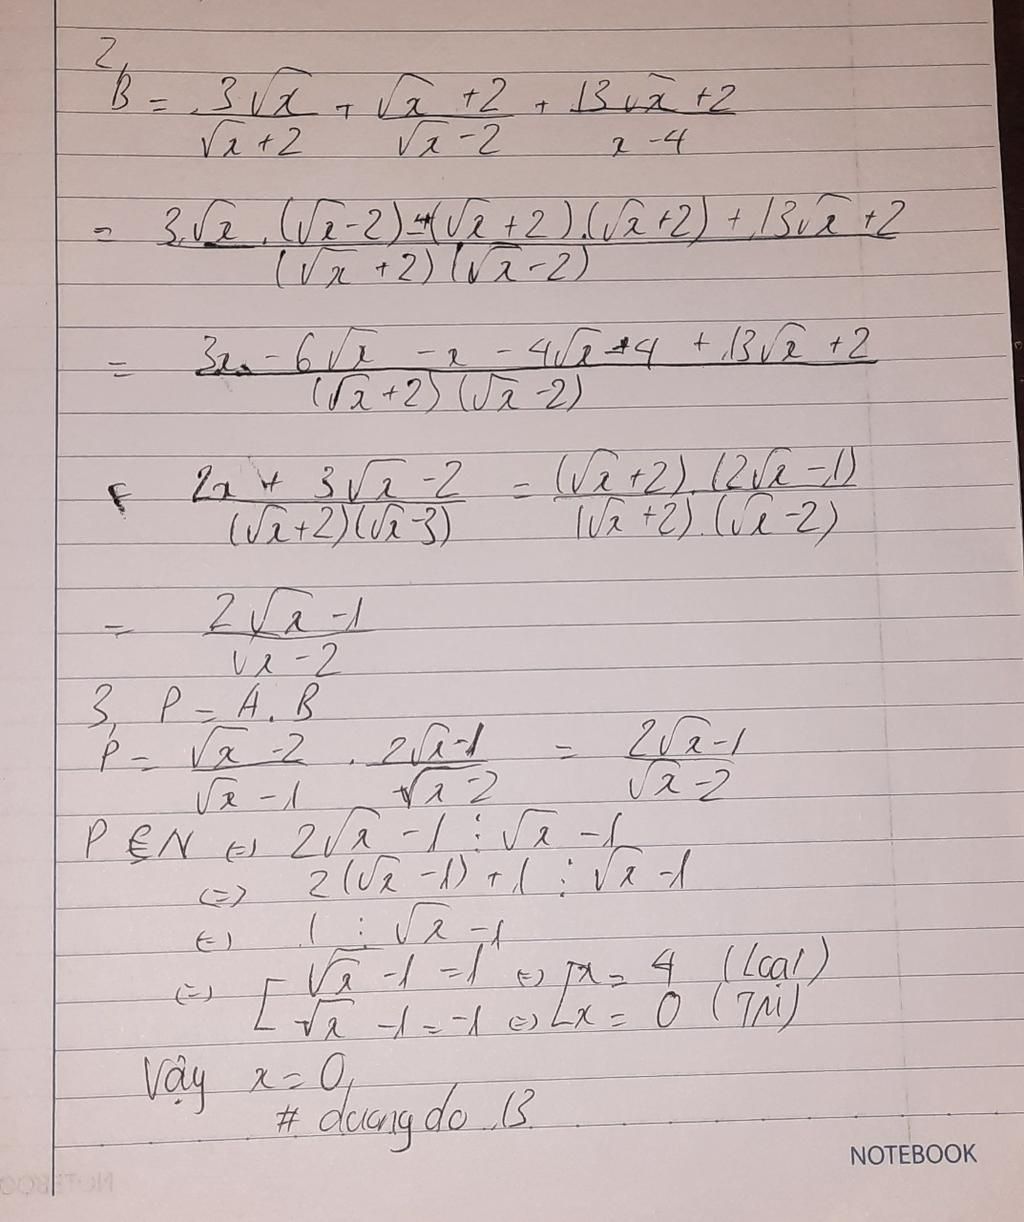 2,
B = 3√x / (√x + 2) - (√x + 2) / (√x - 2) + (13√x + 2) / (x - 4)
= (3.√x . (√x - 2) - (√x + 2).(√x + 2) + 13√x + 2) / ((√x + 2)(√x - 2))
= (3x - 6√x - x - 4√x - 4 + 13√x + 2) / ((√x + 2)(√x - 2))
= (2x + 3√x - 2) / ((√x + 2)(√x - 3)) = ((√x + 2).(2√x - 1)) / ((√x + 2).(√x - 2))
= (2√x - 1) / (√x - 2)
3, P = A.B
P = (√x - 2) / (√x - 1) . (2√x - 1) / (√x - 2) = (2√x - 1) / (√x - 2)
P ∈ N ⇔ 2√x - 1 ⋮ √x - 1
⇔ 2(√x - 1) + 1 ⋮ √x - 1
⇔ 1 ⋮ √x - 1
⇔ [ √x - 1 = 1 ⇔ [ x = 4 (loại)
√x - 1 = -1 ⇔ x = 0 (TM)
Vậy x = 0,
# duongdo .13
NOTEBOOK